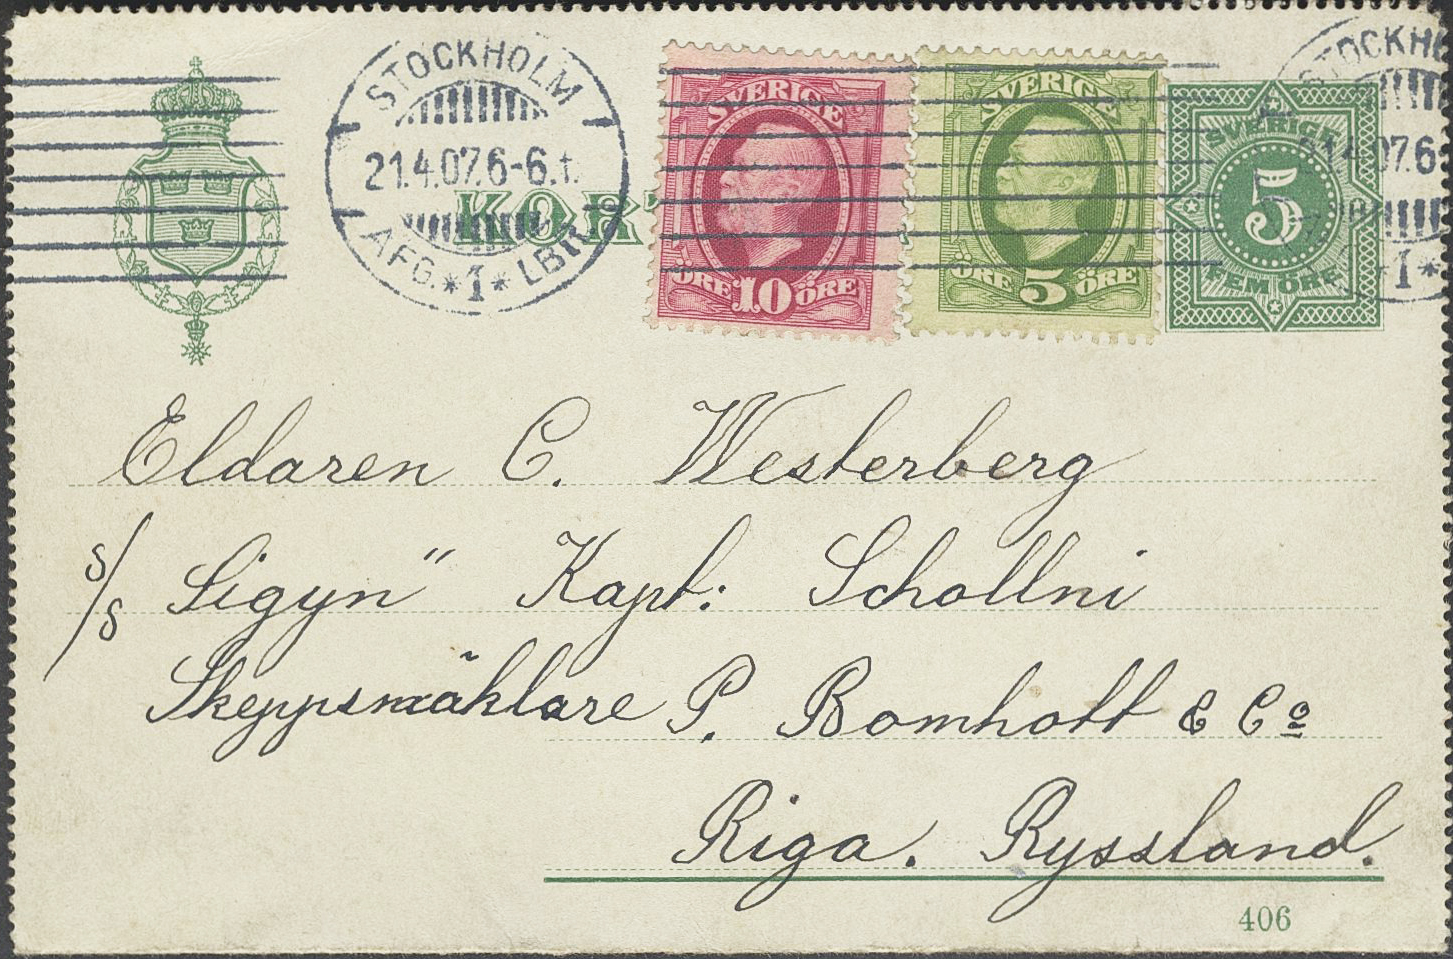 STOCKHOLM
21.4.07.6-6.t.
AFG. *1* LBR
KOR
SVERIGE
ÖRE 10 ÖRE
SVERIGE
ÖRE 5 ÖRE
SVERIGE
5
FEM ÖRE
STOCKH
21.4.07.6-
1*
Eldaren C. Westerberg
s/s Sigyn" Kapt: Schollni
Skeppsmäklare P. Bomholt & Co
Riga. Ryssland.
406